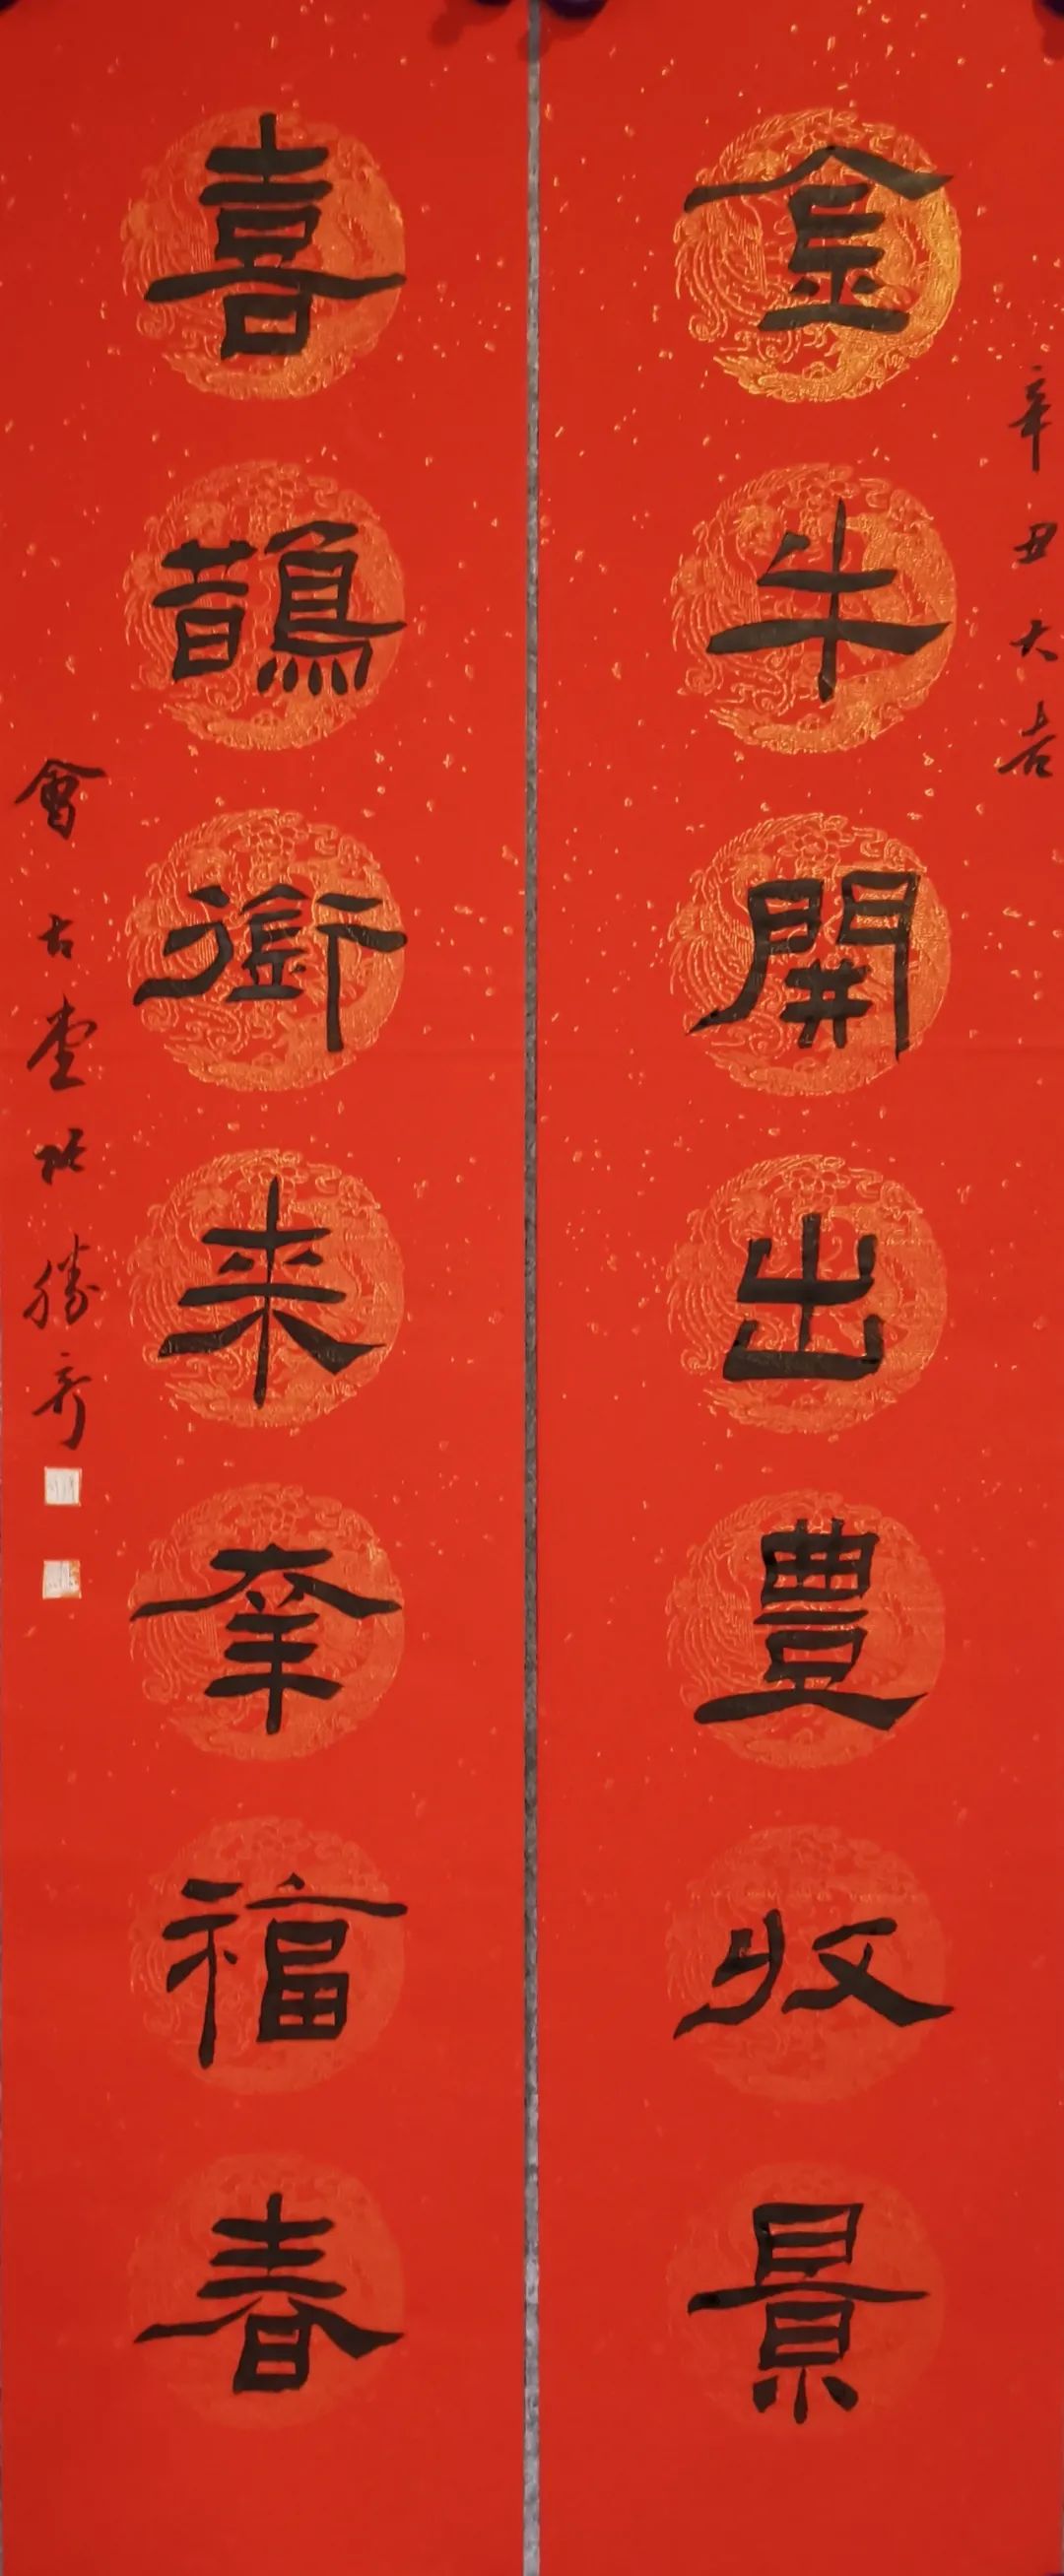 辛丑大吉
金牛開出豊收景
喜鵲銜来幸福春
會古堂 勝